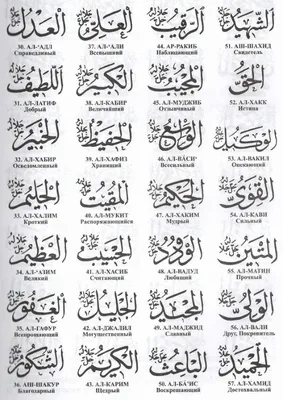 العدل
30. АЛ-‘АДЛ
Справедливый
اللطيف
31. АЛ-ЛАТИФ
Добрый
الخبير
32. АЛ-ХАБИР
Осведомленный
الحليم
33. АЛ-ХАЛИМ
Кроткий
العظيم
34. АЛ-‘АЗИМ
Великий
الغفور
35. АЛ-ГАФУР
Всепрощающий
الشكور
36. АШ-ШАКУР
Благодарный
العلي
37. АЛ-‘АЛИ
Всевышний
الكبير
38. АЛ-КАБИР
Величайший
الحفيظ
39. АЛ-ХАФИЗ
Хранящий
المقيت
40. АЛ-МУКИТ
Распоряжающийся
الحسيب
41. АЛ-ХАСИБ
Считающий
الجليل
42. АЛ-ДЖАЛИЛ
Могущественный
الكريم
43. АЛ-КАРИМ
Щедрый
الرقيب
44. АР-РАКИБ
Наблюдающий
المجيب
45. АЛ-МУДЖИБ
Отзывчивый
الواسع
46. АЛ-ВАСИ‘
Всесильный
الحكيم
47. АЛ-ХАКИМ
Мудрый
الودود
48. АЛ-ВАДУД
Любящий
المجيد
49. АЛ-МАДЖИД
Славный
الباعث
50. АЛ-БА‘ИС
Воскрешающий
الشهيد
51. АШ-ШАХИД
Свидетель
الحق
52. АЛ-ХАКК
Истина
الوكيل
53. АЛ-ВАКИЛ
Опекающий
القوي
54. АЛ-КАВИ
Сильный
المتين
55. АЛ-МАТИН
Прочный
الولي
56. АЛ-ВАЛИ
Друг, Покровитель
الحميد
57. АЛ-ХАМИД
Достохвальный